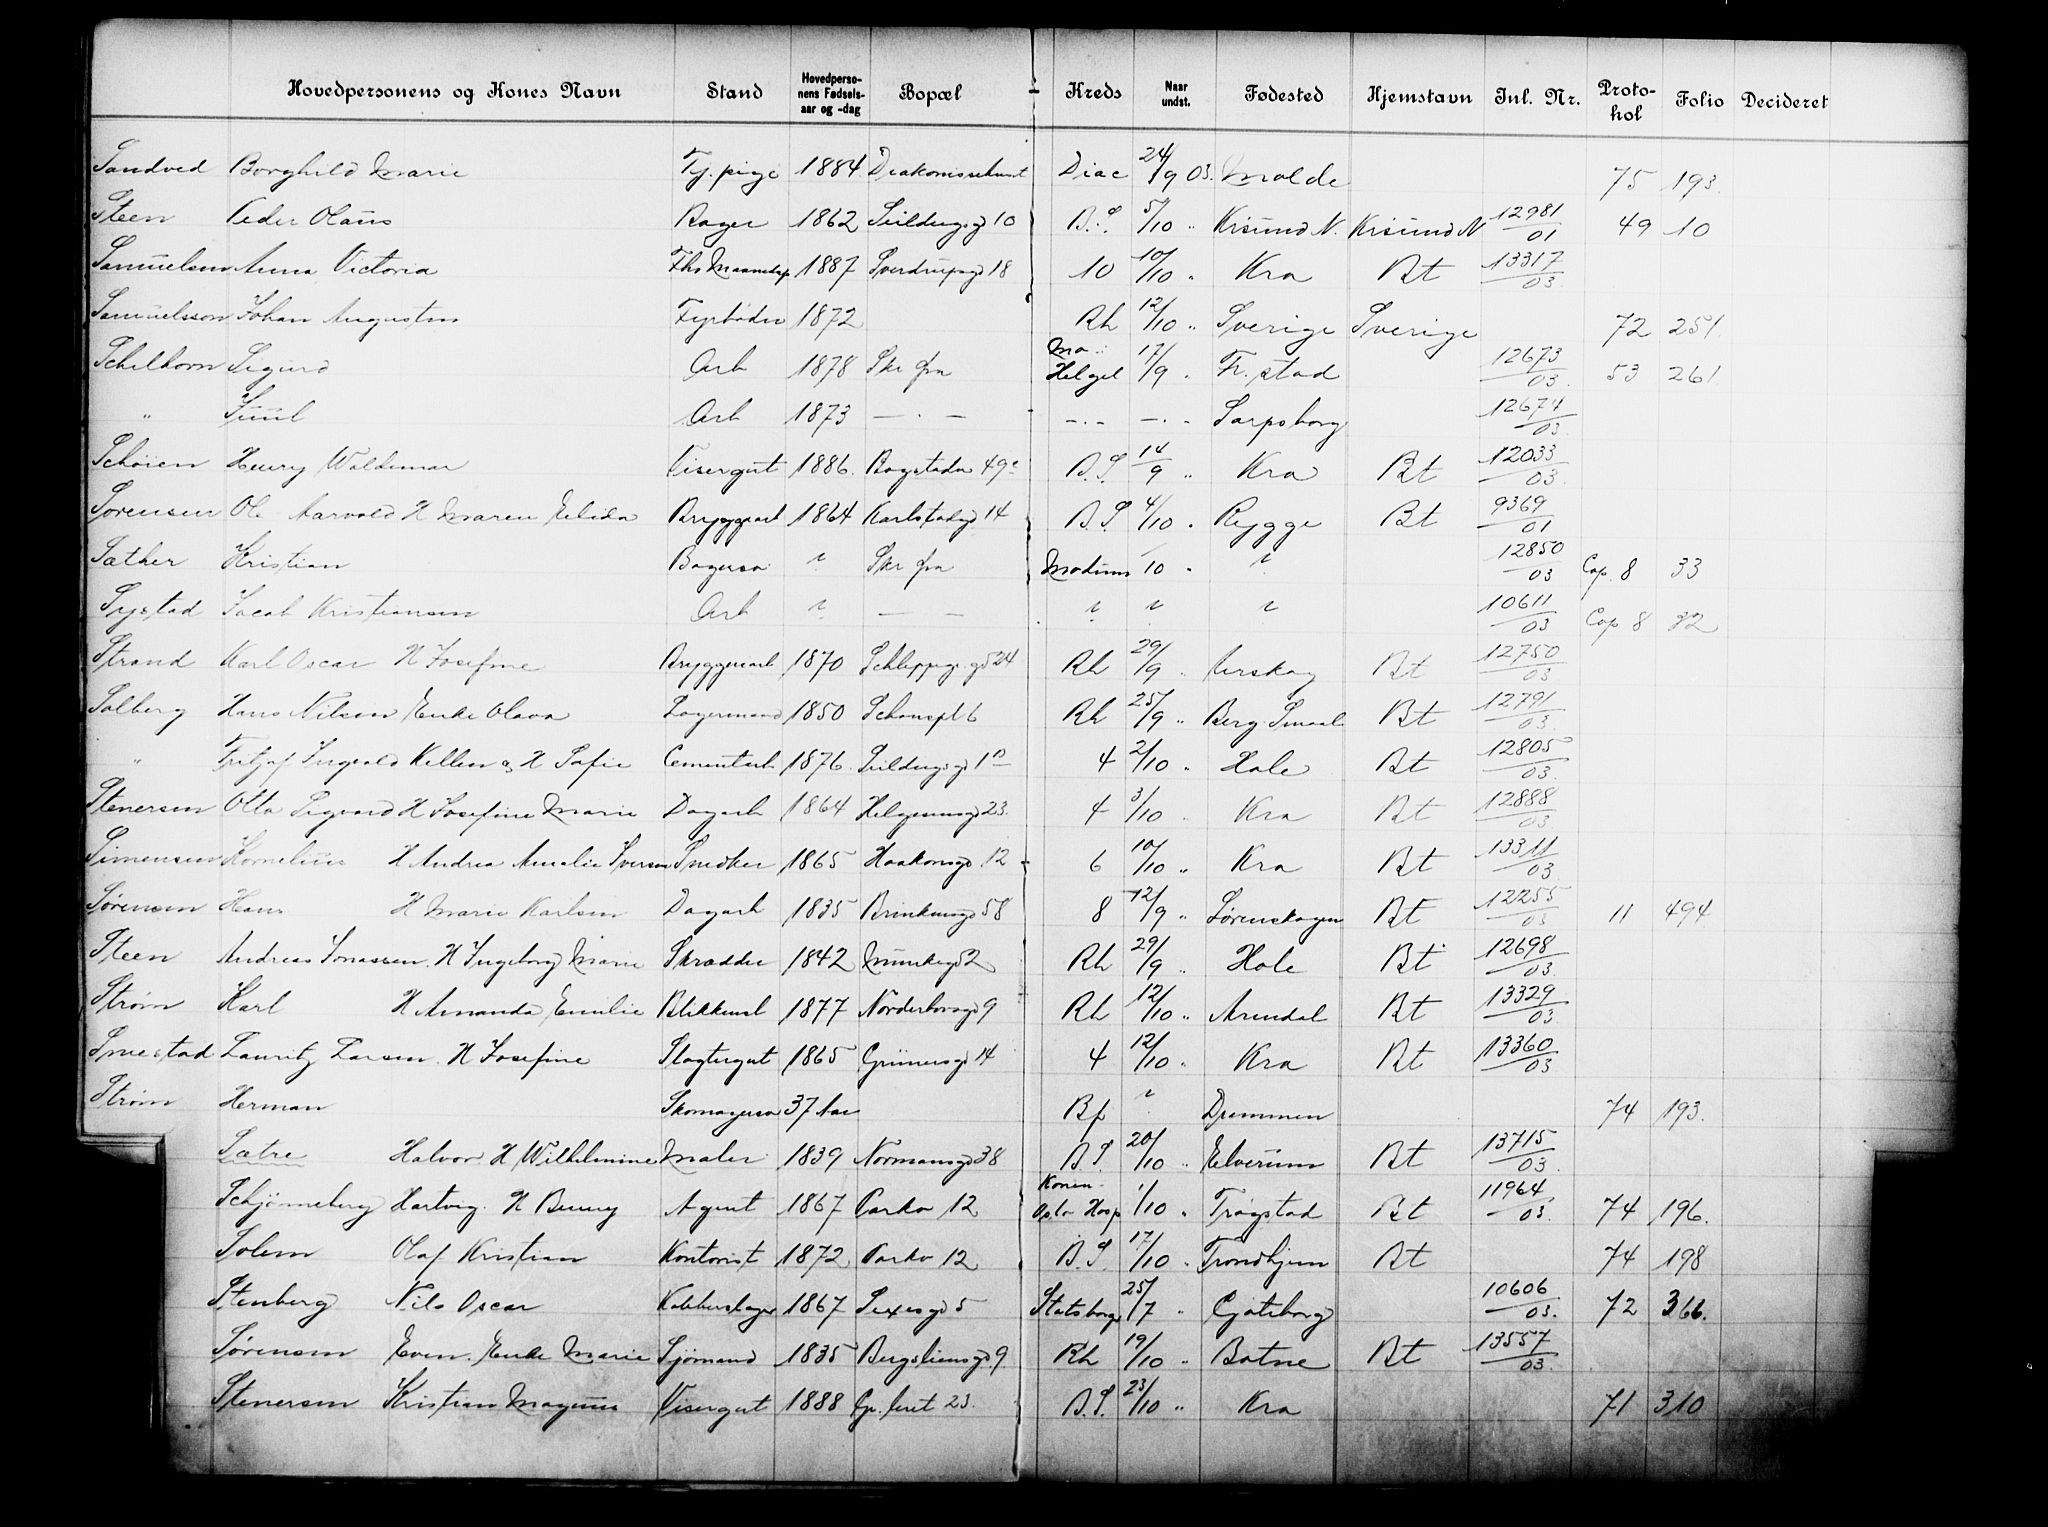 Hovedpersonens og Kones Navn Stand Hovedperso-nens Fødsels-aar og -dag Bopæl Kreds Naar undst. Fødested Hjemstavn Inl. Nr. Proto-kol Folio Decideret
Sandved Borghild Marie Tj. pige 1884 Diakonissehuset Diac 24/9 03. Molde 75 193.
Steen Peder Olaus Bager 1862 10 B.S. 5/10 " Krisund N. Krisund N 12981/01 49 10
Samuelsen Anna Victoria 1887 Sverdrupsgd 18 10 10/10 " Kra Bt 13317/03
Samuelsson Johan Augustin Fyrbøder 1872 Rh 12/10 " Sverige Sverige 72 251.
Schelhorn Sigurd Arb 1878 Skr fra Helgel 17/9 " Fr. stad 12673/03. 53 261
" Juul Arb 1873 — " — — " — — " Sarpsborg 12674/03.
Schøien Henry Waldemar Visergut 1886. Bogstadv 49c B.S. 14/9 " Kra Bt 12033/03
Sørensen Ole Aarvold H Maren Elida Bryggearb 1864 Karlstadgd 14 B.S 4/10 " Rygge Bt 9369/01
Sæther Kristian Bagersv ? Skr fra Modum 10 " ? 12850/03 Cop. 8 33
Systad Jacob Kristiansen Arb ? — — ? ? ? 10611/03 Cop 8 32
Strand Karl Oscar H Josefine Bryggeriarb 1870 Schleppegs gd 24 Rh 29/9 " Urskog Bt 12750/03
Solberg Hans Nilsen Enke Olava Lagermand 1850 Schouspl 6 Rh 25/9 " Berg Smaal Bt 12791/03.
" Fritjof Ingvald H Sofie Cementarb 1876. 4 2/10 " Hole Bt 12805/03.
Stenersen Otto Sigvard H Josefine Marie Dagarb 1864 Helgesensgd 23. 4 3/10 " Kra Bt 12888/03.
Simensen Kornelius H Andrea Amalie Iversen Snedker 1865 Haakonsgd 12 6 10/10 " Kra Bt 13311/03.
Sørensen Hans H Marie Karlsen Dagarb 1835 Brinkensgd 58 8 12/9 " Lørenskogen Bt 12255/03 11 494
Steen Andreas Jonassen. H Ingeborg Marie Skrædder 1842 Munkegd 2 Rh 29/9 " Hole Bt 12698/03.
Strøm Karl H Amanda Emilie Blikkensl 1877 Nordenborsgd 9 Rh 12/10 " Arendal Bt 13329/03
Smestad Lauritz Larsen. H Josefine Slagtergut 1865 Grünersgd 14 4 12/10 " Kra Bt 13360/03
Strøm Herman Skomagersv 37 Aar Bp ? Drammen 74 193.
Sætre Halvor. H Wilhelmine Maler 1839 Normansgd 38 B.S. 20/10 " Elverum Bt 13715/03.
Schjønneberg Hartvig. H Benny Agent 1867 Parkv 12 Konen Oslo Hosp 1/10 " Trøgstad Bt 11964/03. 74 196.
Solem Olaf Kristian Kontorist 1872 Parkv 12 B.S. 17/10 " Trondhjem Bt 74 198
Stenberg Nils Oscar Kobberslager 1867 Sexesgd 5 Statsborger 25/7 " Gøteborg 10606/03. 72 366.
Sørensen Even. Enke Marie Sjømand 1835 Bergsliensgd. 9 Rh 19/10 " Botne Bt 13557/03.
Stenersen Kristian Magnus Visergut 1888 Gr. leret 23. B.S. 23/10 " Kra 71 310